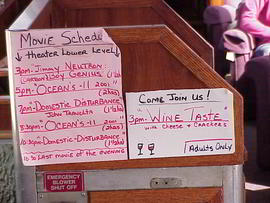 Movie Schedu
↓ Theater Lower Level ↓
3pm - Jimmy Neutron:
Cartoon Boy Genius (1½hr)
5pm - "Ocean's - 11" 2001
(2hrs)
7pm - Domestic Disturbance
John Travolta (1½hr)
8:30pm - "Ocean's - 11" 2001
(2hrs)
10:30pm - Domestic Disturbance
(1½hr)
10:30 Last movie of the evening
Come Join Us!
3pm - "Wine Taste"
with Cheese & Crackers
Adults Only
EMERGENCY
BLOWER
SHUT OFF